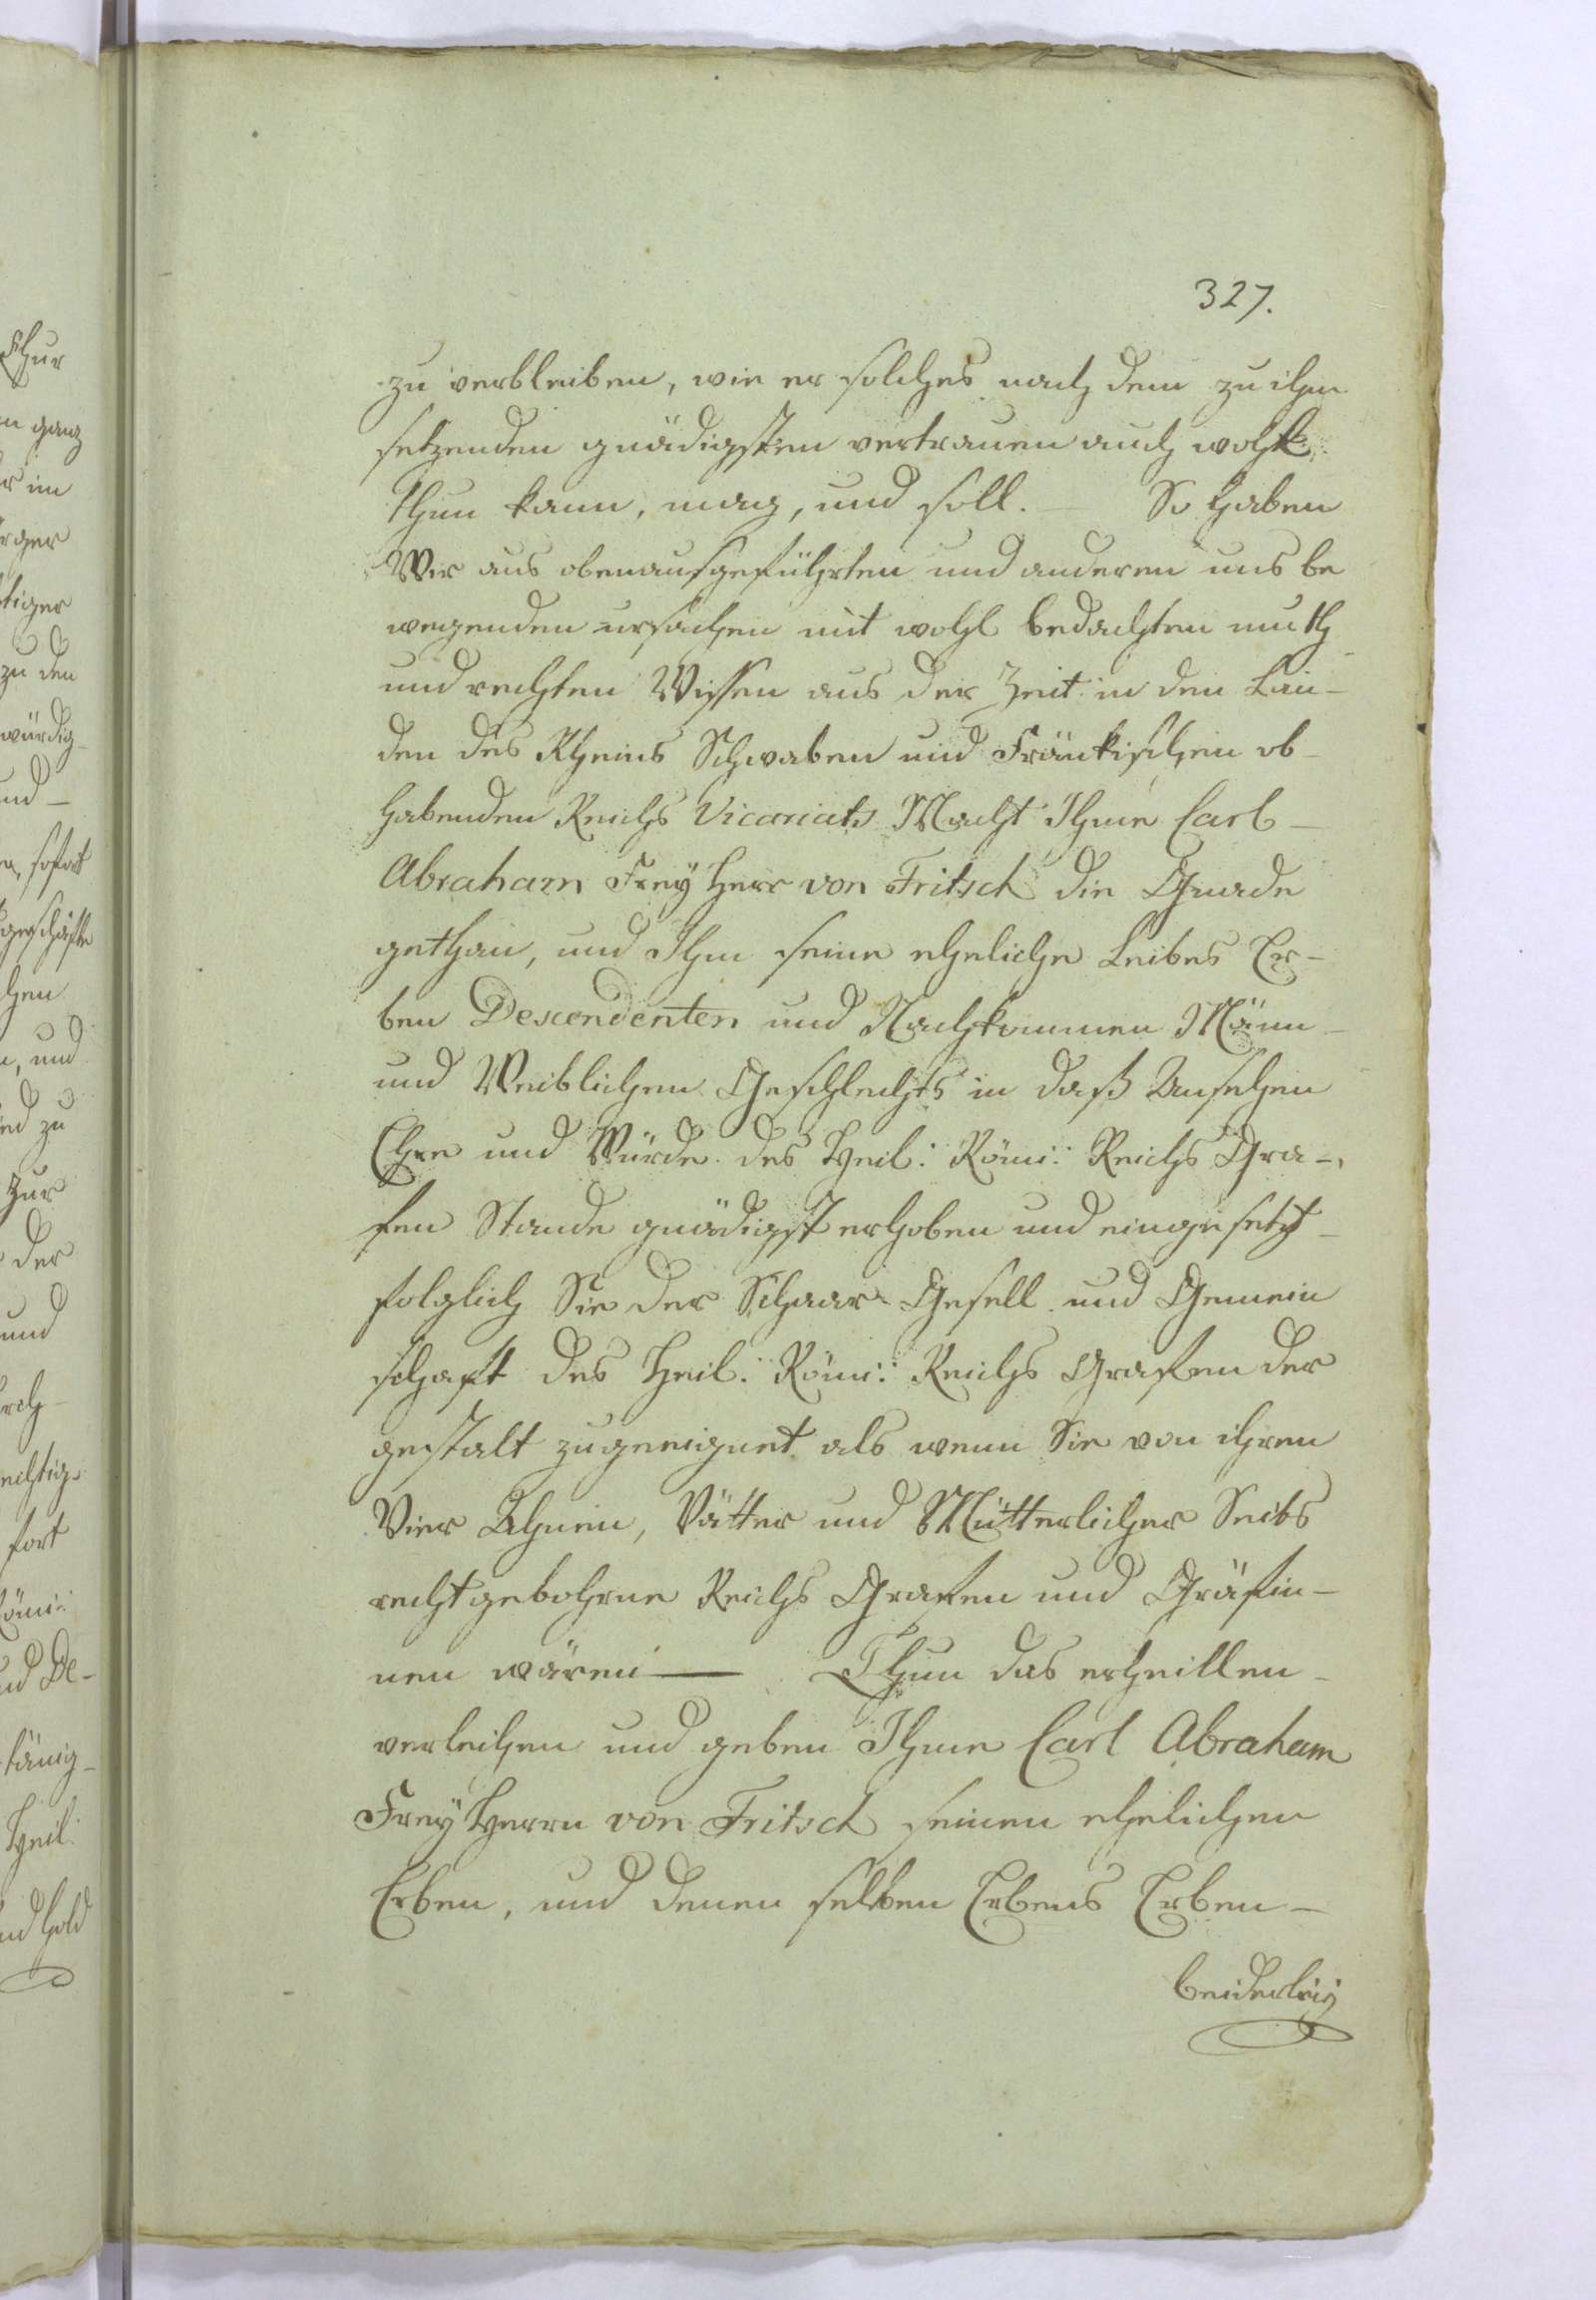 327.
zu verbleiben, wie er solches nach dem zu ihm
setzenden gnädigsten vertrauen auch wohl
thun kann, mag, und soll. — So haben
Wir aus obenausgeführten und anderen uns be
wegenden ursachen mit wohl bedachten muth
und rechten Wissen aus der Zeit in den Lan-
den des Rheins Schwaben und Fränkischen ob-
habenden Reichs Vicariats Macht Ihme Carl
Abraham Frey Herr von Fritsch die Gnade
gethan, und Ihm seine eheliche Leibes Er-
ben Descendenten und Nachkommen Männ-
und Weiblichen Geschlechts in daß Ansehen
Ehre und Würde des Heil: Röm: Reichs Gra-
fen Stande gnädigst erhoben und eingesetzt
folglich Sie der Schaar Gesell und Gemein
schaft des Heil: Röm: Reichs Grafen der
gestalt zugeeignet als wenn Sie von ihren
Vier Ahnen, Vätter und Mütterlicher Seits
recht gebohrne Reichs Grafen und Gräfin-
nen wären — Thun das ertheillen
verleihen und geben Ihme Carl Abraham
Frey Herrn von Fritsch seinen ehelichen
Erben, und denen selben Erbens Erben —
beiderleÿ
Chur
ganz
im
zu den
würdig-
sofort
und
zu
zur
der
und
fort
Röm:
De-
Heil:
Gold